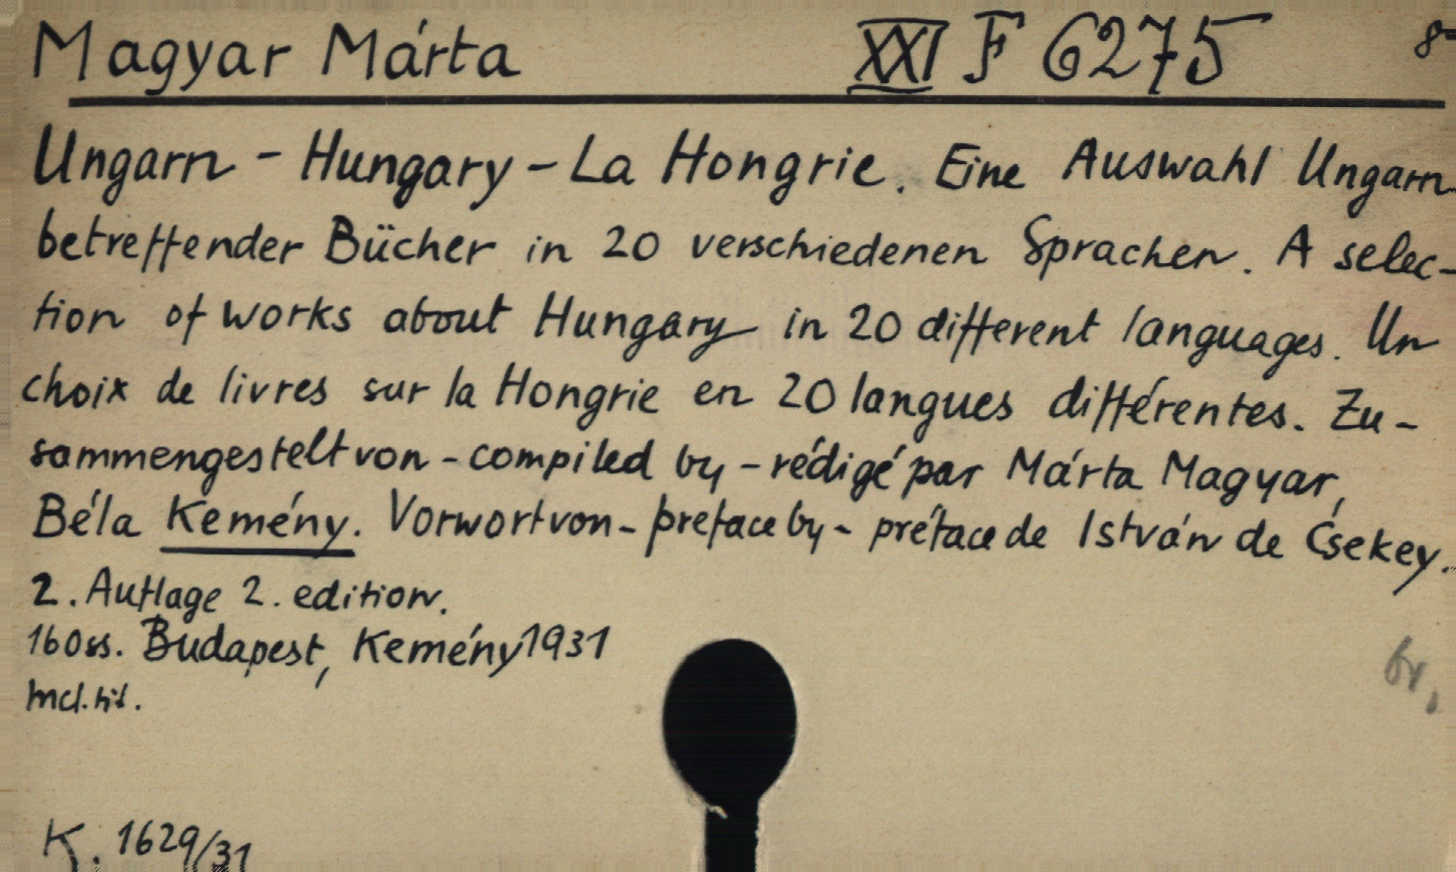 Magyar Márta XXI F 6275 8°
Ungarn - Hungary - La Hongrie. Eine Auswahl Ungarn
betreffender Bücher in 20 verschiedenen Sprachen. A selec-
tion of works about Hungary in 20 different languages. Un
choix de livres sur la Hongrie en 20 langues différentes. Zu-
sammengestelt von - compiled by - rédigé par Márta Magyar,
Béla Kemény. Vorwort von - preface by - préface de István de Csekey.
2. Auflage 2. edition.
160ss. Budapest, Kemény 1931
Incl. tit.
br,
K. 1629/31